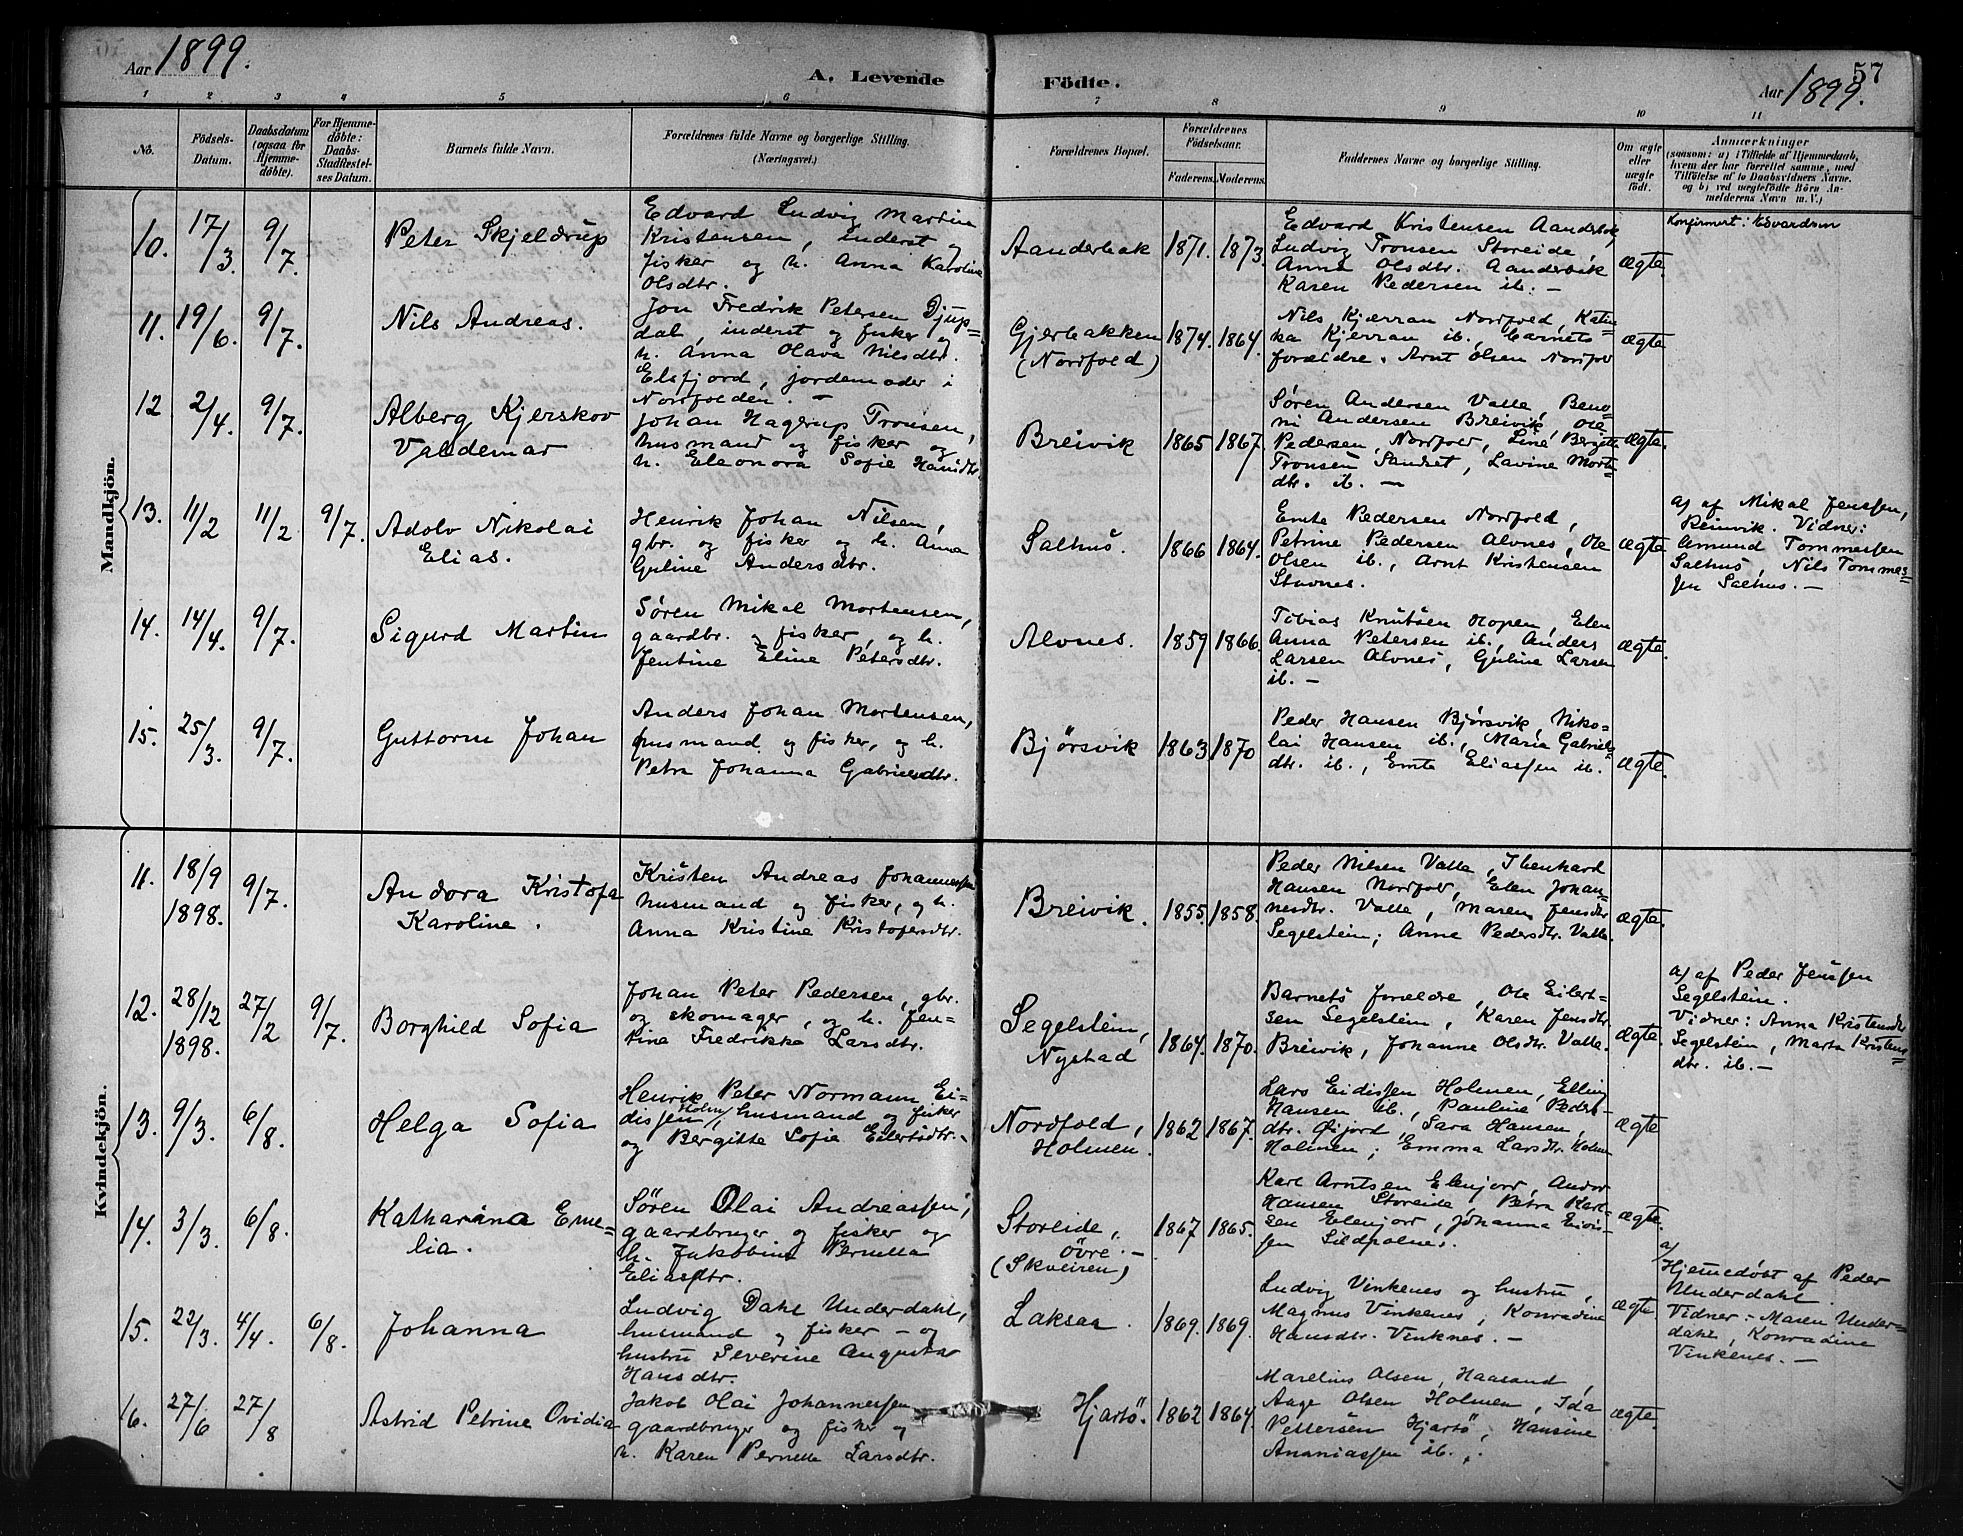 Aar 1899.
A. Levende
Födte.
57
Aar 1899.
1 2 3 4 5 6 7 8 9 10 11
No.
Födsels-
Datum.
Daabsdatum
(ogsaa for
Hjemme-
døbte).
For Hjemme-
døbte:
Daabs-
Stadfæstel-
ses Datum.
Barnets fulde Navn.
Forældrenes fulde Navne og borgerlige Stilling.
(Næringsvei.)
Forældrenes Bopæl.
Forældrenes
Födselsaar.
Faderens. Moderens.
Faddernes Navne og borgerlige Stilling.
Om ægte
eller
uægte
født.
Anmærkninger
(saasom: a) i Tilfælde af Hjemmedaab,
hvem der har forrettet samme, med
Tilføielse af to Daabsvidners Navne,
og b) ved uægtefödte Börn An-
melderens Navn m. V.)
Mandkjön.
10. 17/3. 9/7. Peter Skjeldrup
Edvard Ludvig Martin
Kristensen, inderst og
fisker og h. Anna Karoline
Olsdtr.
Aanderbak 1871. 1873.
Edvard Kristensen Aanderbak
Ludvig Tronsen Storeide,
Anna Olsdtr. Aanderbak
Karen Pedersen ib. –
ægte.
Konfirmert: Edvardsen
11. 19/6. 9/7. Nils Andreas.
Jon Fredrik Petersen Djup=
dal, inderst og fisker og
h. Anna Olava Nilsdtr.
Elsfjord, jordemoder i
Nordfolden. –
Gjerbakken
(Nordfold)
1874. 1864.
Nils Kjærran Nordfold, Katin=
ka Kjerran ib., barnets
forældre. Arnt Olsen Nordfold
ægte
12 2/4. 9/7. Alberg Kjerskov
Valdemar
Johan Hagerup Tronsen,
husmand og fisker og
h. Eleonora Sofie Hansdtr.
Breivik 1865 1867.
Søren Andersen Valle, Beno=
ni Andersen Breivik, Ole
Pedersen, Nordfold, Line Bergitte
Tronsen Sandset, Lavine Morte=
dtr. ib. –
ægte.
13. 11/2 11/2 9/7. Adolv Nikolai
Elias.
Henrik Johan Nilsen,
gbr. og fisker og h. Anna
Guline Andersdtr.
Salhus. 1866 1864.
Emte Pedersen Nordfold,
Petrine Pedersen Alvnes, Ole
Olsen ib., Arnt Kristensen
Stavnes.
ægte
a) af Mikal Jenssen,
Reinvik. Vidner:
Amund Tommessen
Salhus, Nils Tommes=
sen Salhus. –
14. 14/4. 9/7. Sigurd Martin
Søren Mikal Mortensen,
gaardbr. og fisker, og h.
Jentine Eline Petersdtr.
Alvnes. 1859 1866.
Tobias Knutsen Hopen, Elen
Anna Petersen ib., Anders
Larsen Alvnes, Guline Larsen
ib. –
ægte.
15. 25/3. 9/7. Guttorm Johan
Anders Johan Mortensen,
husmand og fisker, og h.
Petra Johanna Gabrielsdtr.
Bjørsvik 1863 1870
Peder Hansen Bjørsvik, Niko=
lai Hansen ib., Maria Gabriels=
dtr. ib., Emte Eliassen ib.
ægte.
Kvindekjön.
11. 18/9 1898. 9/7. Andora Kristofa
Karoline.
Kristen Andreas Johannessen
husmand og fisker, og h.
Anna Kristine Kristofersdtr.
Breivik. 1855. 1858.
Peder Nilsen Valle, Ibenhard
Hansen Nordfold, Elen Johan=
nesdtr. Valle, Maren Jensdtr
Segelstein; Anne Pedersdtr. Valle.
ægte.
12. 28/12 1898. 27/2 9/7. Borghild Sofia
Johan Peter Pedersen, gbr.
og skomager, og h. Jen=
tine Fredrikke Larsdtr.
Segelstein,
Nystad
1864. 1870.
Barnets forældre, Ole Eilert=
sen Segelstein, Karen Jensdtr
Breivik, Johanne Olsdtr. Valle.
ægte.
a) af Peder Jenssen
Segelstein.
Vidner: Anna Kristensdtr
Segelstein, Marta Kristens=
dtr. ib. –
13. 9/3. 6/8. Helga Sofia
Henrik Peter Normann Ei=
dissen Holm, husmand og fisker
og Bergitte Sofie Eilertsdtr. –
Nordfold,
Holmen.
1862 1867.
Lars Eidissen Holmen, Elling
Hansen ib., Pauline Peders=
dtr. Øijord, Sara Hansen,
Holmen; Emma Larsdtr. Holmen
ægte
14. 3/3. 6/8. Katharina Eme=
lia.
Søren Olai Andreassen,
gaardbruger og fisker og
h. Jakobine Pernella
Eliasdtr.
Storeide,
øvre. –
(Skveiren)
1867 1865.
Karl Arntsen Elenjord, Andor
Hansen Storeide, Petra Karl=
sen Elenjord, Johanna Eidis=
sen Sildpolnes.
ægte.
15. 22/3. 4/4. 6/8. Johanna
Ludvig Dahl Underdahl,
husmand og fisker – og
hustru Severine Augusta
Hansdtr.
Laksaa. 1869. 1869.
Ludvig Vinkenes og hustru,
Magnus Vinkenes, Konradine
Hansdtr. Vinknes. –
ægte.
a)
Hjemedøbt af Peder
Underdahl.
Vidner: Maren Under=
dahl, Konradine
Vinkenes. –
16. 27/6 27/8 Astrid Petrine Ovidia
Jakob Olai Johannessen,
gaardbruger og fisker og
h. Karen Pernelle Larsdtr.
Hjartö. 1862 1864.
Marelius Olsen, Haasand,
Aage Olsen Holmen, Ida
Pettersen Hjartö, Hansine
Ananiassen ib.
ægte.